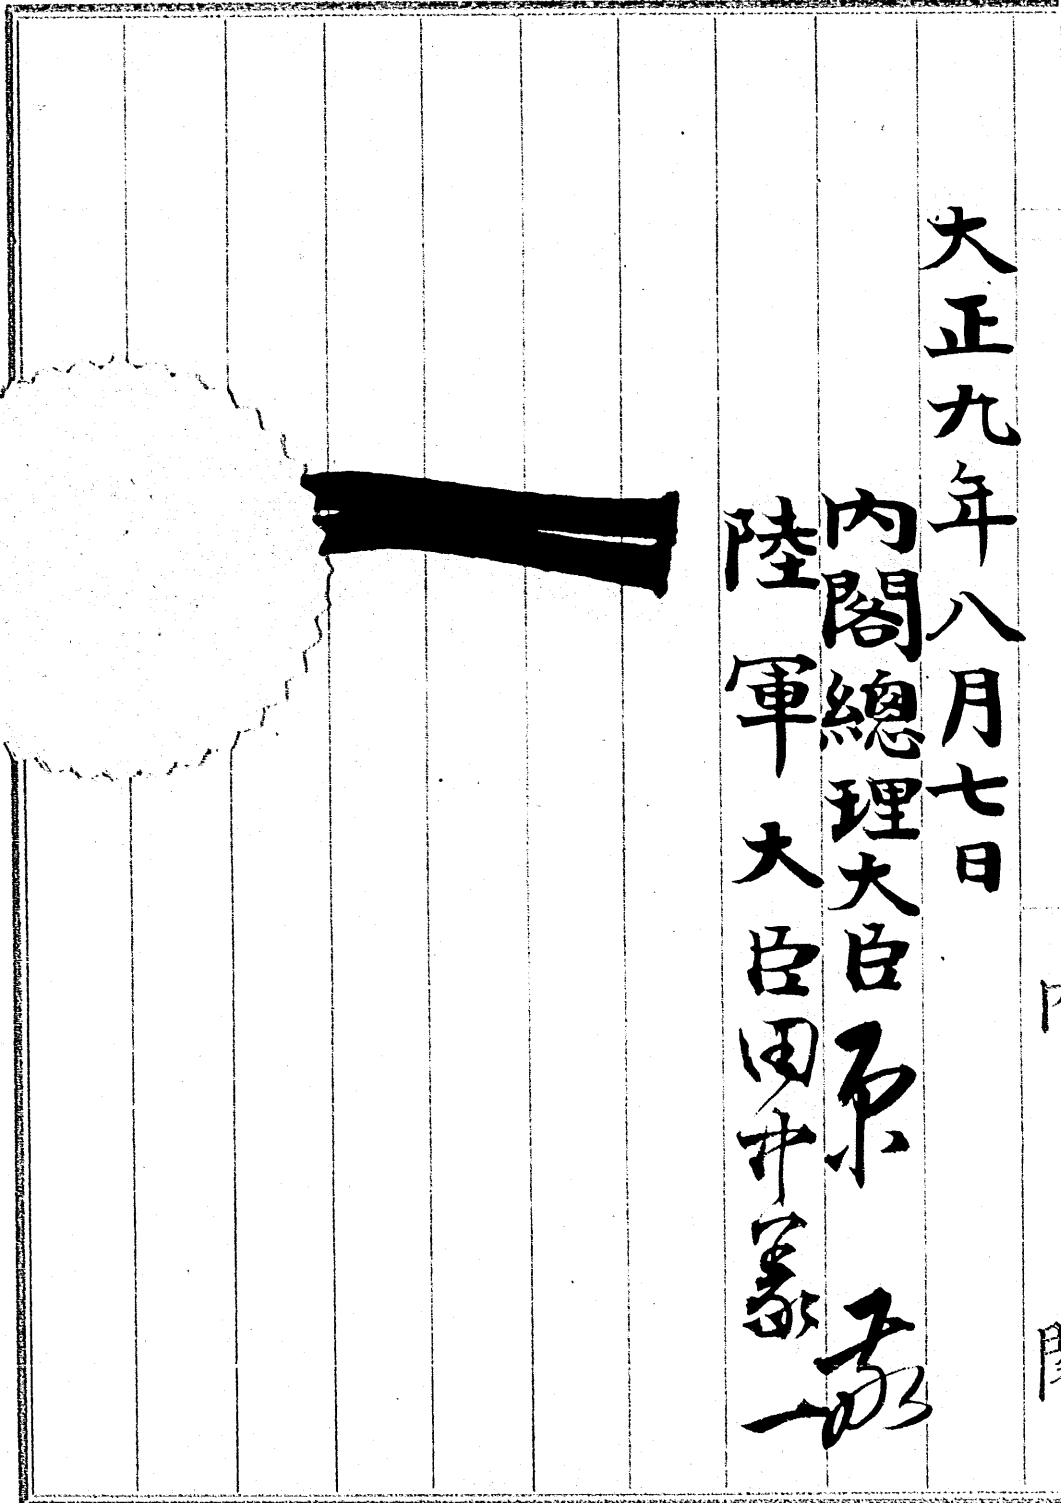 大正九年八月七日
內閣總理大臣原敬
陸軍大臣田中義一
內
閣